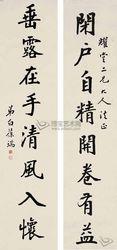 閉戶自精開卷有益
二兄大人法正
垂露在手清風入懷
弟白葆